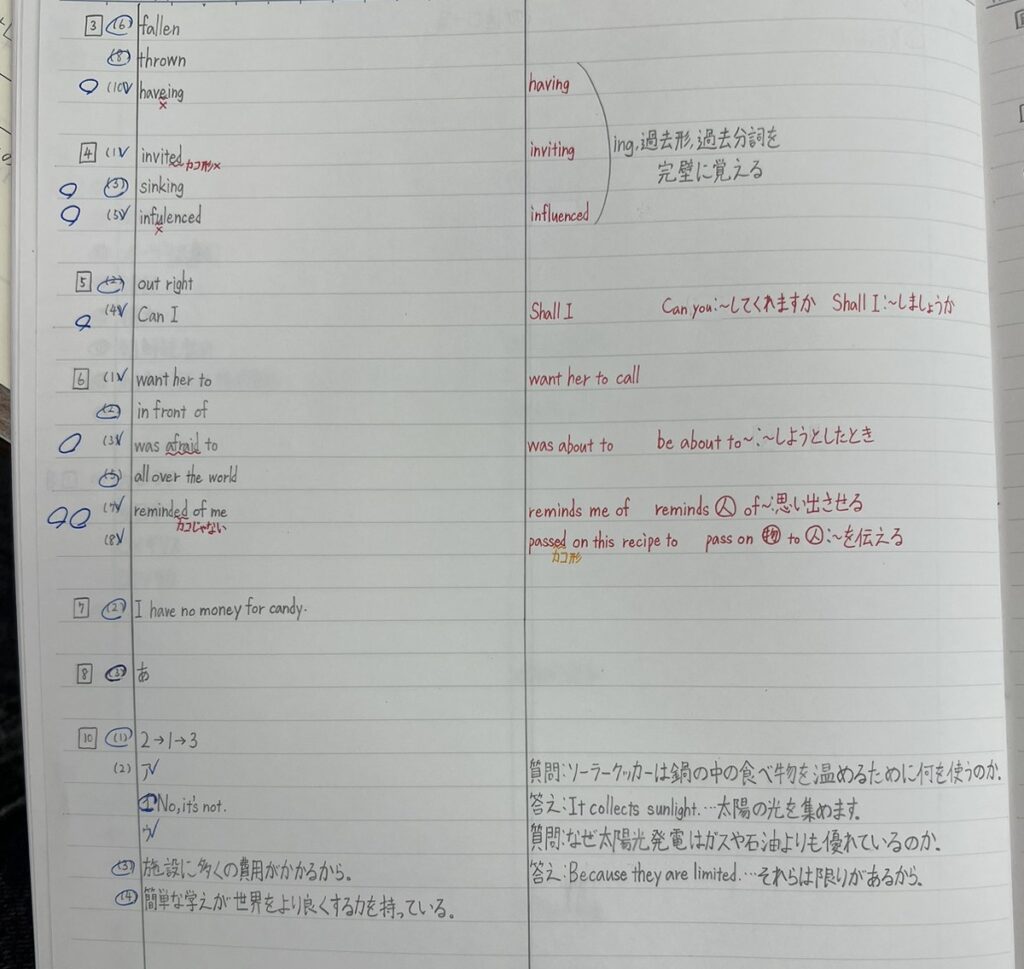 3 (6) fallen
(8) thrown
(10) haveing having
×
ing,過去形,過去分詞を
完璧に覚える
4 (1) invited inviting
カコ形×
(3) sinking
(5) infulenced influenced
×
5 (2) out right
(4) Can I Shall I Can you:~してくれますか Shall I:~しましょうか
6 (1) want her to want her to call
(2) in front of
(3) was afraid to was about to be about to~:~しようとしたとき
(5) all over the world
(7) reminded of me reminds me of reminds 人 of~:思い出させる
カコじゃない
(8) passed on this recipe to pass on 物 to 人:~を伝える
カコ形
7 (2) I have no money for candy.
8 (3) あ
10 (1) 2→1→3
(2) ア 質問:ソーラークッカーは鍋の中の食べ物を温めるために何を使うのか.
イ No, it's not. 答え:It collects sunlight.…太陽の光を集めます.
ウ 質問:なぜ太陽光発電はガスや石油よりも優れているのか.
(3) 施設に多くの費用がかかるから。 答え:Because they are limited.…それらは限りがあるから.
(4) 簡単な学えが世界をより良くする力を持っている。